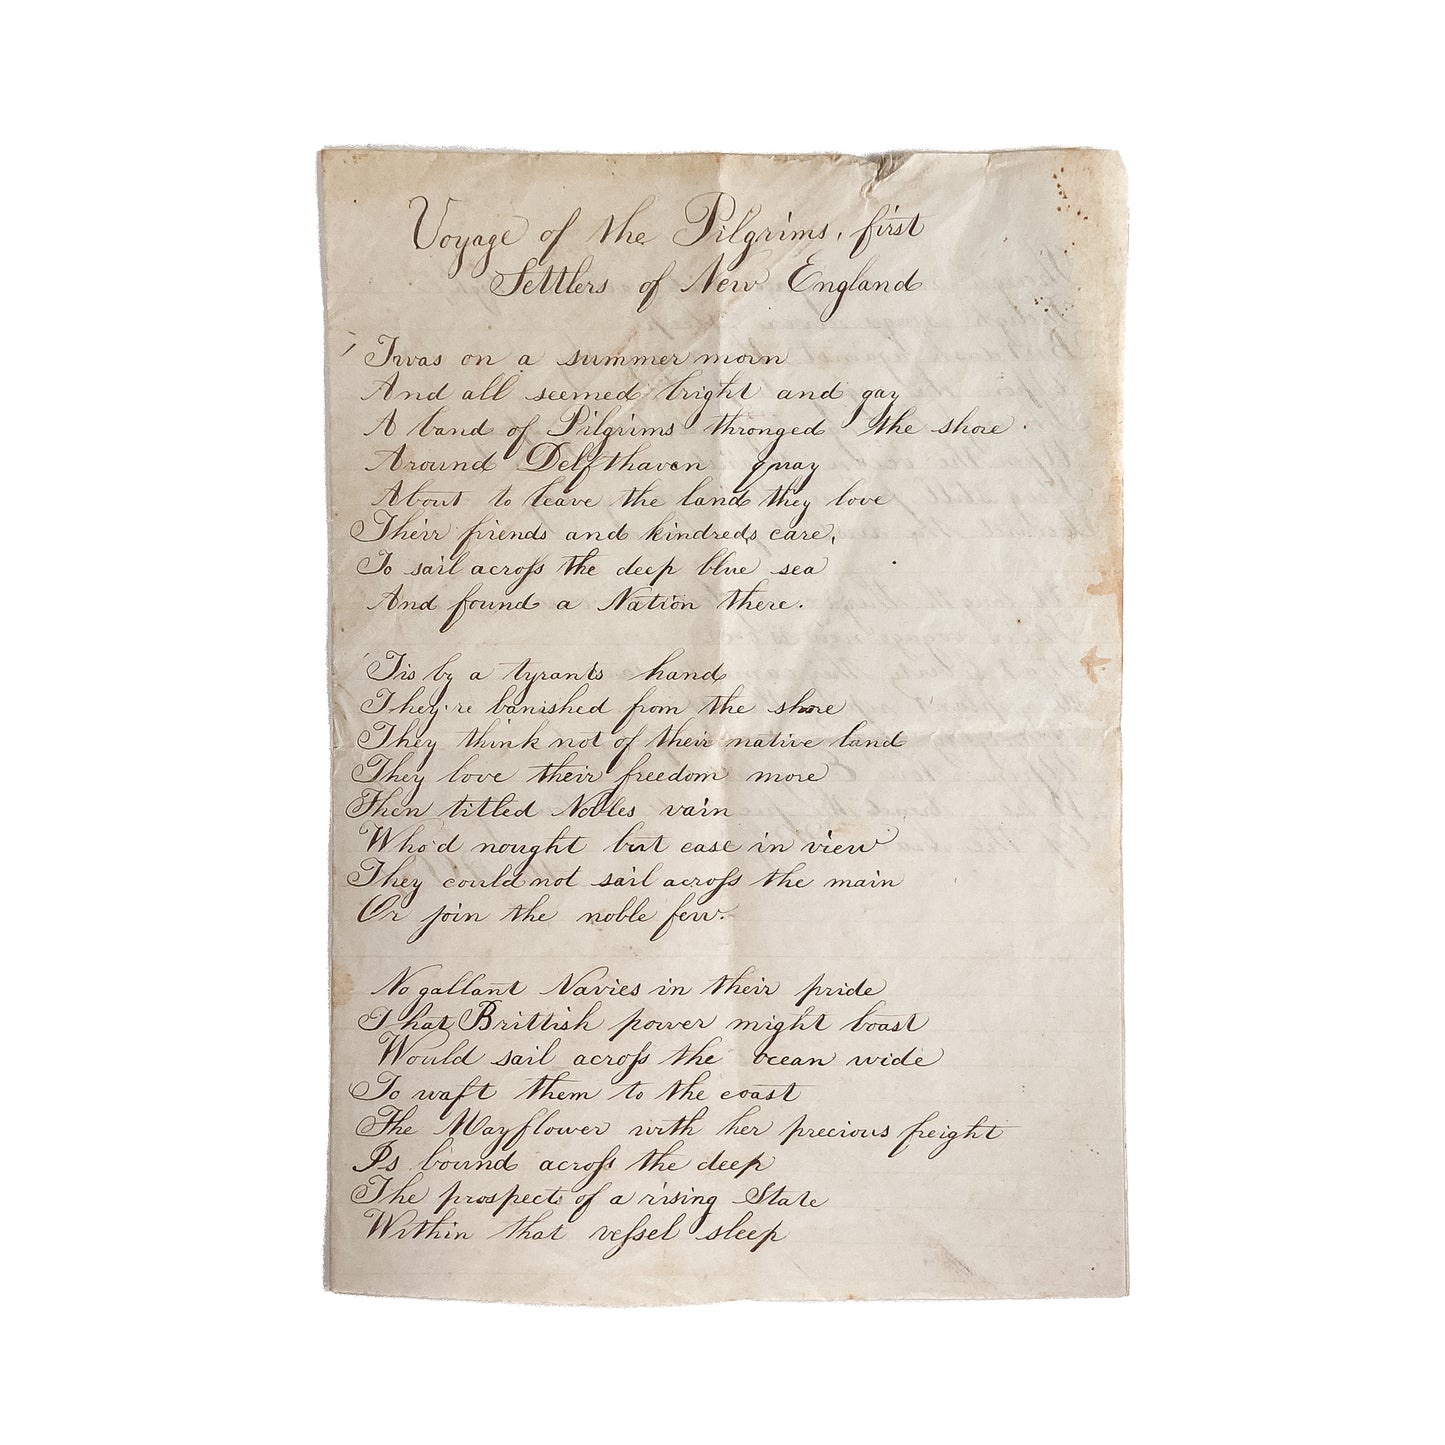 Voyage of the Pilgrims, first
Settlers of New England
'Twas on a summer morn
And all seemed bright and gay
A band of Pilgrims thronged the shore
Around Delfthaven quay
About to leave the land they love
Their friends and kindreds care,
To sail across the deep blue sea
And found a Nation there.
'Tis by a tyrants hand
They're banished from the shore
They think not of their native land
They love their freedom more
Then titled Nobles vain
Who'd nought but ease in view
They could not sail across the main
Or join the noble few.
No gallant Navies in their pride
That Brittish power might boast
Would sail across the ocean wide
To waft them to the coast
The Mayflower with her precious freight
Is bound across the deep
The prospects of a rising State
Within that vessel sleep